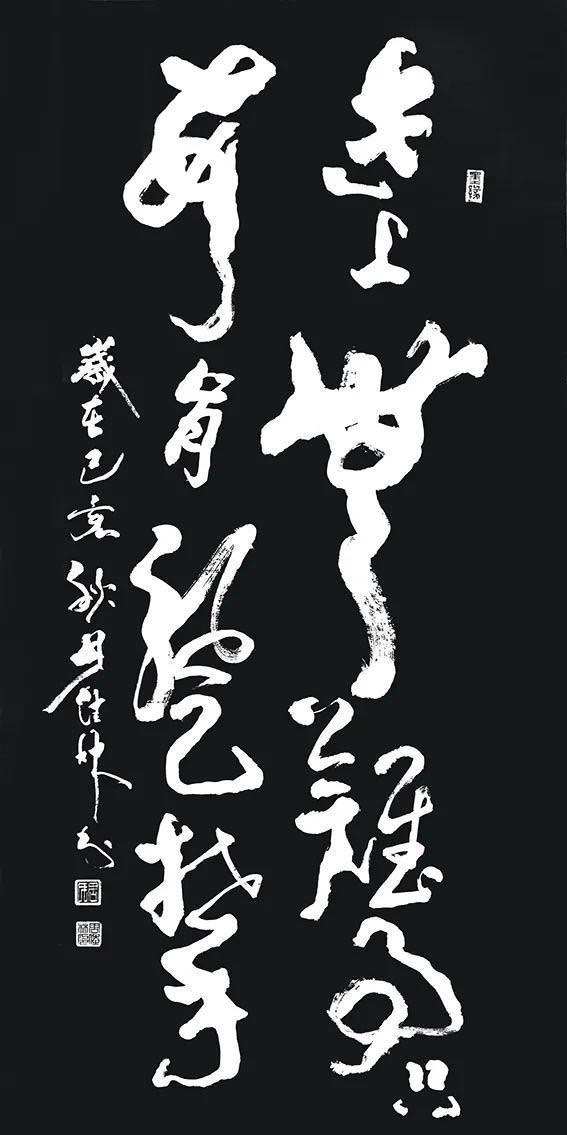 世上無難事只
要肯登攀
歲在己亥秋月書